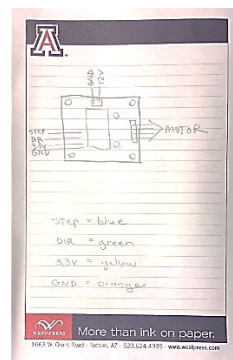 A
GND
12V
STEP
DIR
3.3V
GND
MOTOR
STEP = blue
DIR = green
3.3V = yellow
GND = orange
WESTPRESS
More than ink on paper.
1663 W. Grant Road · Tucson, AZ · 520.624.4939 · www.westpress.com